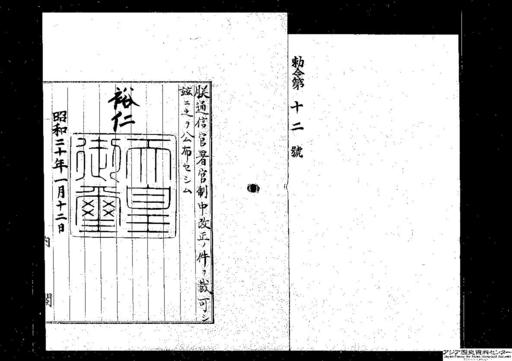 勅令第十二號
朕通信官署官制中改正ノ件ヲ裁可シ
玆ニ之ヲ公布セシム
裕仁
天皇御璽
昭和二十年一月十二日
内閣
アジア歴史資料センター